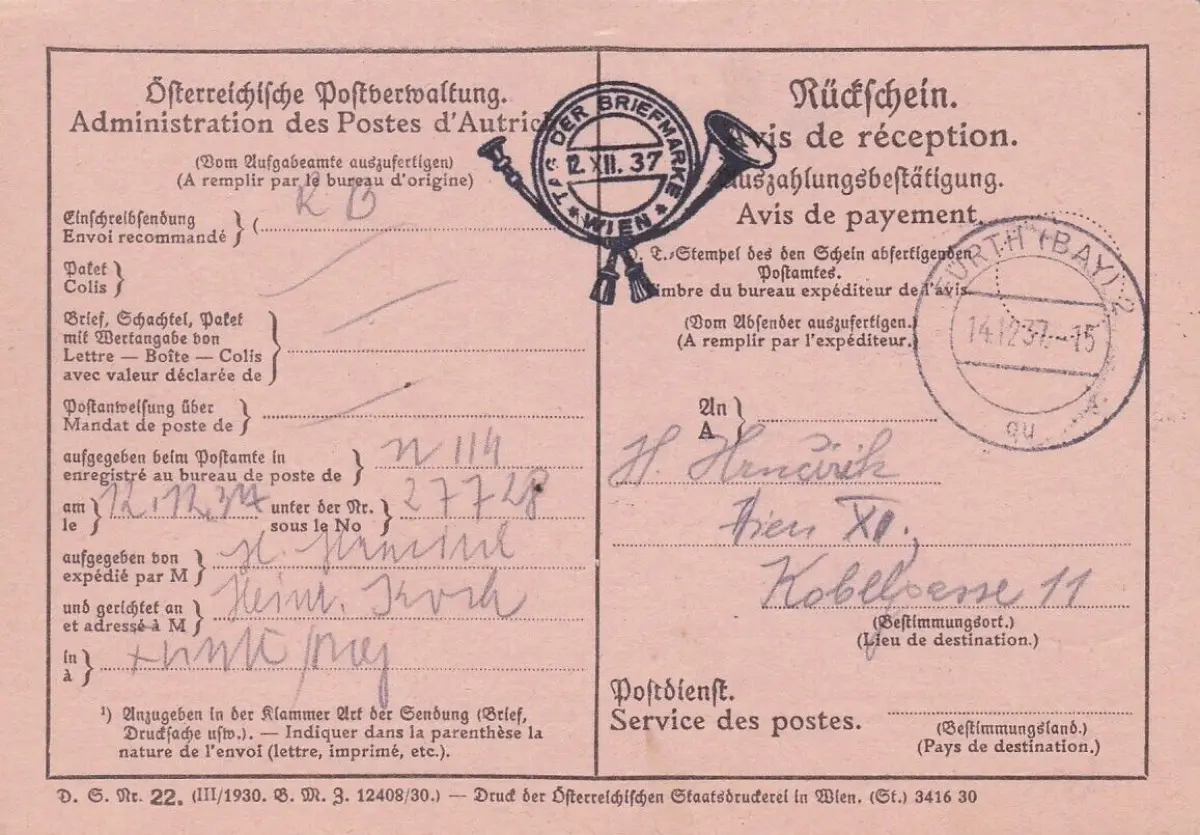 Österreichische Postverwaltung.
Administration des Postes d'Autrich
(Vom Aufgabeamte auszufertigen)
(A remplir par le bureau d'origine)
Einschreibsendung
Envoi recommandé
Paket
Colis
Brief, Schachtel, Paket
mit Wertangabe von
Lettre — Boîte — Colis
avec valeur déclarée de
Postanweisung über
Mandat de poste de
aufgegeben beim Postamte in
enregistré au bureau de poste de
114
am
le
12.12.37
unter der Nr.
sous le No
27728
aufgegeben von
expédié par M
H.
und gerichtet an
et adressé à M
Heinr. Koch
in
à
¹) Anzugeben in der Klammer Art der Sendung (Brief,
Drucksache usw.). — Indiquer dans la parenthèse la
nature de l'envoi (lettre, imprimé, etc.).
TAG DER BRIEFMARKE
12.XII.37
* WIEN *
Rückschein.
Avis de réception.
Auszahlungsbestätigung.
Avis de payement.
T.-Stempel des den Schein abfertigenden
Postamtes.
Timbre du bureau expéditeur de l'avis.
(Vom Absender auszufertigen.)
(A remplir par l'expéditeur.)
FÜRTH (BAY) 2
14.12.37.-15
An
A
H. Hrnčirik
Wien XI.,
Kobelgasse 11
(Bestimmungsort.)
(Lieu de destination.)
Postdienst.
Service des postes.
(Bestimmungsland.)
(Pays de destination.)
D. S. Nr. 22. (III/1930. B. M. Z. 12408/30.) — Druck der Österreichischen Staatsdruckerei in Wien. (St.) 3416 30